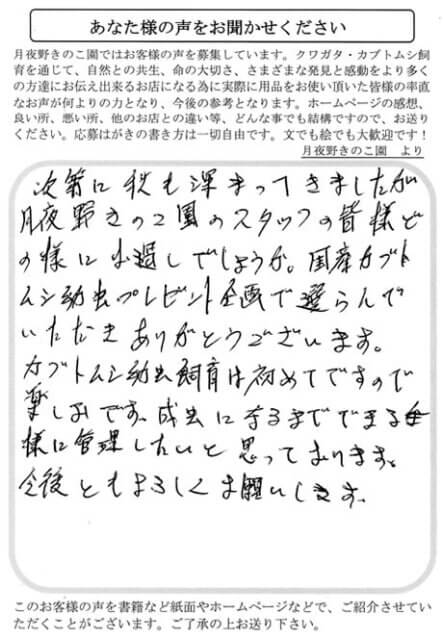 あなた様の声をお聞かせください
月夜野きのこ園ではお客様の声を募集しています。クワガタ・カブトムシ飼
育を通じて、自然との共生、命の大切さ、さまざまな発見と感動をより多く
の方達にお伝え出来るお店になる為に実際に用品をお使い頂いた皆様の率直
なお声が何よりの力となり、今後の参考となります。ホームページの感想、
良い所、悪い所、他のお店との違い等、どんな事でも結構ですので、お送り
ください。応募はがきの書き方は一切自由です。文でも絵でも大歓迎です！
月夜野きのこ園　より
次第に秋も深まってきましたが
月夜野きのこ園のスタッフの皆様ど
の様にお過しでしょうか。国産カブト
ムシ幼虫プレゼント企画で選らんで
いただきありがとうございます。
カブトムシ幼虫飼育は初めてですので
楽しみです。成虫になるまでできる
様に管理したいと思っております。
今後ともよろしくお願いします。
このお客様の声を書籍など紙面やホームページなどで、ご紹介させてい
ただくことがございます。ご了承の上お送り下さい。